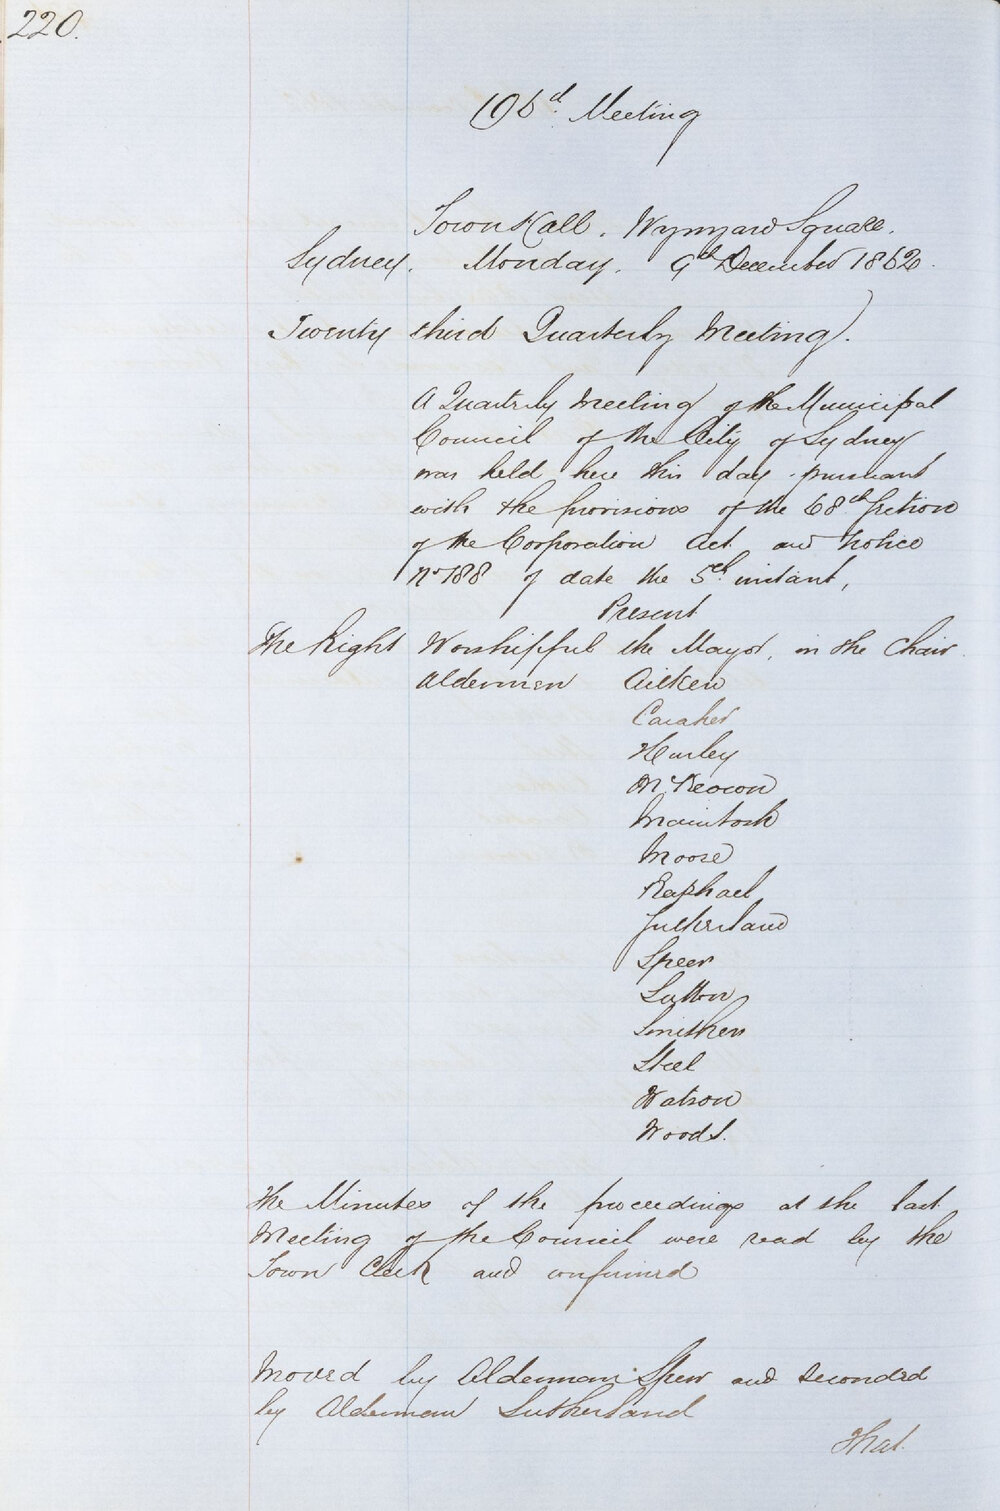 220.
196th Meeting
Town Hall, Wynyard Square.
Sydney. Monday, 9th December 1862.
Twenty third Quarterly Meeting.
A Quarterly Meeting of the Municipal
Council of the City of Sydney
was held here this day pursuant
with the provisions of the 68th Section
of the Corporation Act and Notice
No 188 of date the 5th instant,
Present
The Right Worshipful the Mayor, in the Chair.
Aldermen Aitken
Caraher
Hurley
McKeown
Macintosh
Moore
Raphael
Sutherland
Speer
Sutton
Smithers
Steel
Watson
Woods.
The Minutes of the proceedings at the last
Meeting of the Council were read by the
Town Clerk and confirmed
Moved by Alderman Speer and seconded
by Alderman Sutherland
That